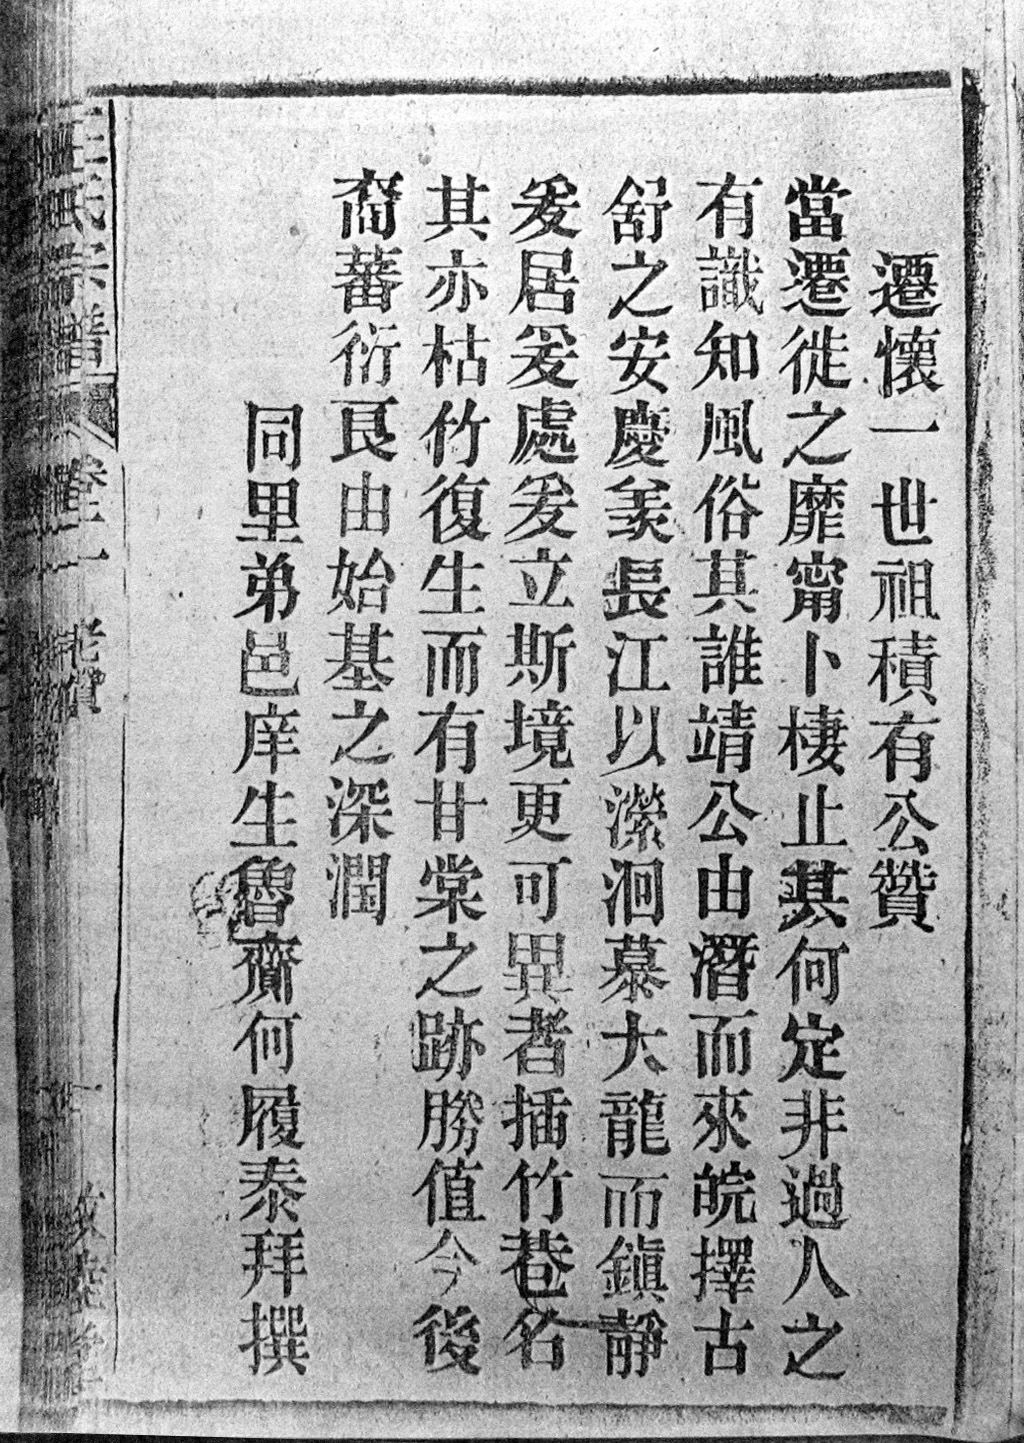 遷懷一世祖積有公贊
當遷徙之靡甯卜棲止其何定非過人之
有識知風俗其誰靖公由潛而來皖擇古
舒之安慶羨長江以瀠洄慕大龍而鎭靜
爰居爰處爰立斯境更可異者插竹巷名
其亦枯竹復生而有甘棠之跡勝值今後
裔蕃衍艮由始基之深潤
同里弟邑庠生魯齋何履泰拜撰
氏宗譜 卷一 老贊